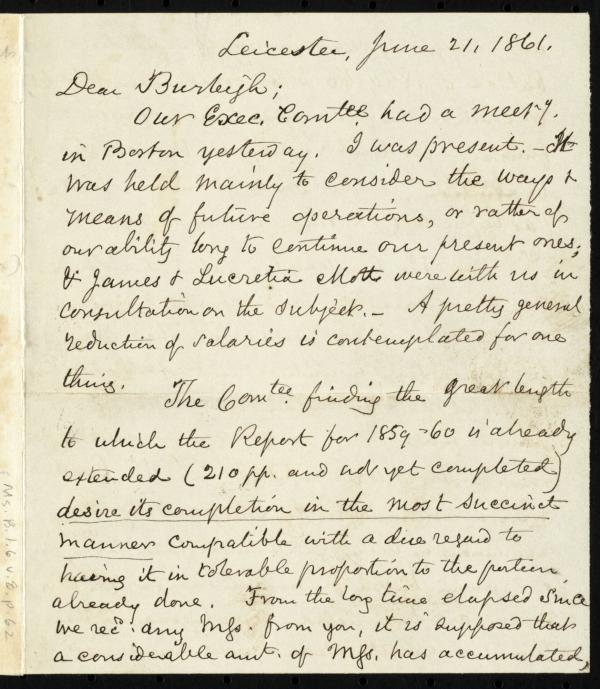 Leicester, June 21, 1861.
Dear Burleigh;
Our Exec. Comtee. had a meetg.
in Boston yesterday. I was present. – It
was held mainly to consider the ways &
means of future operations, or rather of
our ability long to continue our present ones;
& James & Lucretia Mott were with us in
consultation on the subject. – A pretty general
reduction of salaries is contemplated for one
thing.
The Comtee. finding the great length
to which the Report for 1859-60 is already
extended (210 pp. and not yet completed)
desire its completion in the most succinct
manner compatible with a due regard to
having it in tolerable proportion to the portion
already done. From the long time elapsed since
we recd. any Mss. from you, it is supposed that
a considerable amt. of Mss. has accumulated,
Ms. B.1.6 v.8, p. 62